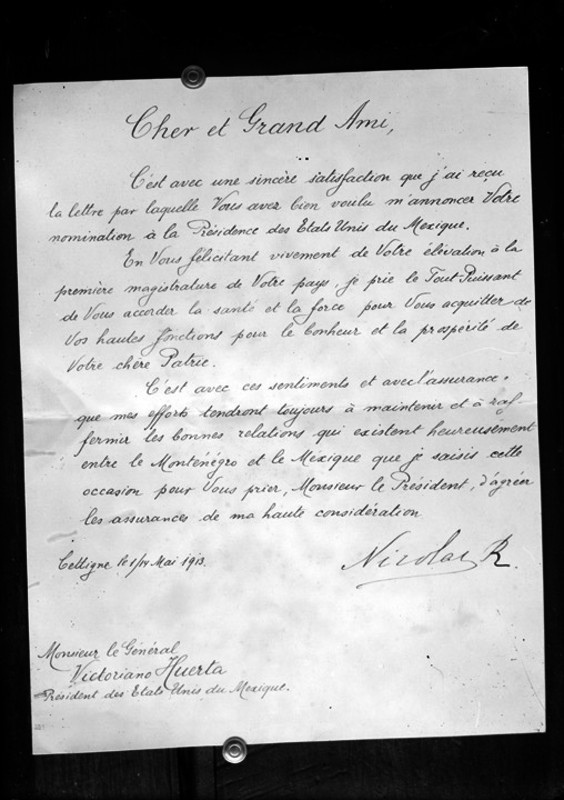 Cher et Grand Ami,
C'est avec une sincère satisfaction que j'ai reçu
la lettre par laquelle Vous avez bien voulu m'annoncer Votre
nomination à la Présidence des Etats Unis du Mexique.
En Vous félicitant vivement de Votre élévation à la
première magistrature de Votre pays, je prie le Tout-Puissant
de Vous accorder la santé et la force pour Vous acquitter de
Vos hautes fonctions pour le bonheur et la prospérité de
Votre chère Patrie.
C'est avec ces sentiments et avec l'assurance
que mes efforts tendront toujours à maintenir et à raf
fermir les bonnes relations qui existent heureusement
entre le Monténégro et le Méxique que je saisis cette
occasion pour Vous prier, Monsieur le Président, d'agréer
les assurances de ma haute considération
Cettigne le 1/14 Mai 1913.
Nicolas R.
Monsieur le Général
Victoriano Huerta
Président des Etats Unis du Mexique.